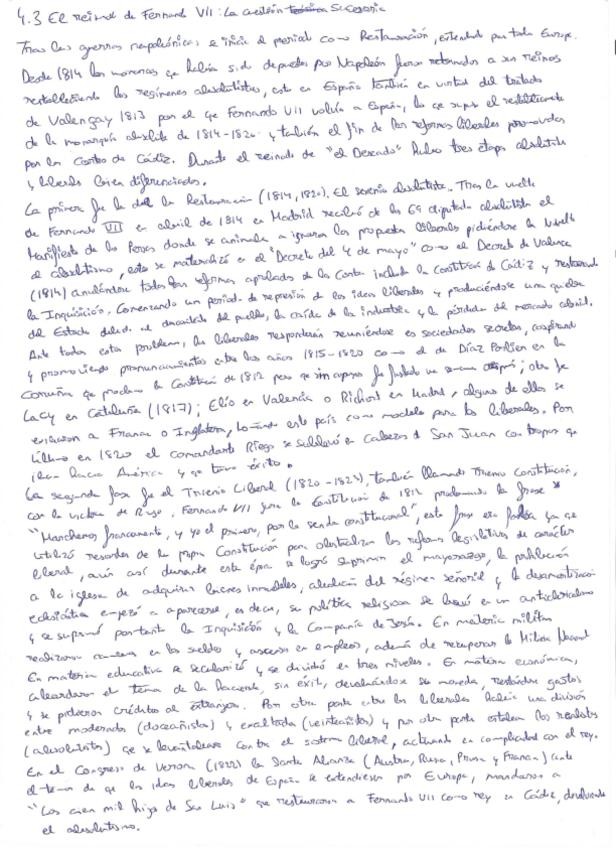 4.3 El reinado de Fernando VII: La cuestión Sucesoria
Tras las guerras napoleónicas se inicia el periodo como Restauración, extendido por toda Europa.
Desde 1814 los monarcas que había sido depuestos por Napoleón fueron retornados a sus reinos
restableciendo los regímenes absolutistas, esto en España también en virtud del tratado
de Valençay 1813 por el que Fernando VII volvía a España, lo que supuso el restablecimiento
de la monarquía absoluta de 1814-1820 y también el fin de las reformas liberales promovidas
por las Cortes de Cádiz. Durante el reinado de "el Deseado" hubo tres etapas absolutista
y liberales bien diferenciadas.
La primera fue la de la Restauración (1814, 1820). El sexenio absolutista. Tras la vuelta
de Fernando VII en abril de 1814 en Madrid recibió de los 69 diputados absolutistas el
Manifiesto de los Persas donde se animaba a ignorar las propuestas liberales pidiéndose la vuelta
al absolutismo, esto se materializó en el "Decreto del 4 de mayo" como el Decreto de Valencia
(1814) anulándose todas las reformas aprobadas de las Cortes incluida la Constitución de Cádiz y restaurando
la Inquisición. Comenzando un periodo de represión de las ideas liberales y produciéndose una quiebra
del Estado debido al descontento del pueblo, la caída de la industria y la pérdida del mercado colonial.
Ante todos estos problemas, los liberales respondieron reuniéndose en sociedades secretas, conspirando
y promoviendo pronunciamientos entre los años 1815-1820 como el de Díaz Porlier en la
Coruña que proclamó la Constitución de 1812 pero que sin apoyos fue fusilado una semana después; otro fue
Lacy en Cataluña (1817); Elío en Valencia o Richart en Madrid, algunos de ellos se
exiliaron a Francia o Inglaterra, tomando este país como modelo para los liberales. Por
último en 1820 el comandante Riego se sublevó en Cabezas d San Juan con tropas que
iban hacia América y que tuvo éxito.
La segunda fase fue el Trienio Liberal (1820-1823), también llamado Trienio Constitucional,
con la victoria de Riego. Fernando VII jura la Constitución de 1812 proclamando la frase
"Marchemos francamente, y yo el primero, por la senda constitucional", esta frase era falsa ya que
utilizó resortes de la propia Constitución para obstaculizar las reformas legislativas de carácter
liberal, aún así durante esta época se logró suprimir el mayorazgo, la prohibición
a la iglesia de adquirir bienes inmuebles, abolición del régimen señorial y la desamortización
eclesiástica empezó a aparecerse, es decir, su política religiosa se basó en un anticlericalismo
y se suprimió por tanto la Inquisición y la Compañía de Jesús. En materia militar
realizaron cambios en los sueldos y ascensos en empleos, además de recuperar la Milicia Nacional
En materia educativa se secularizó y se dividió en tres niveles. En materia económica,
abordaron el tema de la Hacienda, sin éxito, devaluándose su moneda, gastos
y se pidieron créditos al extranjero. Por otra parte entre los liberales había una división
entre moderados (doceañistas) y exaltados (veinteañistas) y por otra parte estaban los realistas
(absolutistas) que se levantaban contra el sistema liberal, actuando en complicidad con el rey.
En el Congreso de Verona (1822) la Santa Alianza (Austria, Rusia, Prusia y Francia) ante
el temor de que las ideas liberales de España se extendiesen por Europa, mandaron a
"Los cien mil hijos de San Luis" que restauraron a Fernando VII como rey en Cádiz, devolviendo
el absolutismo.